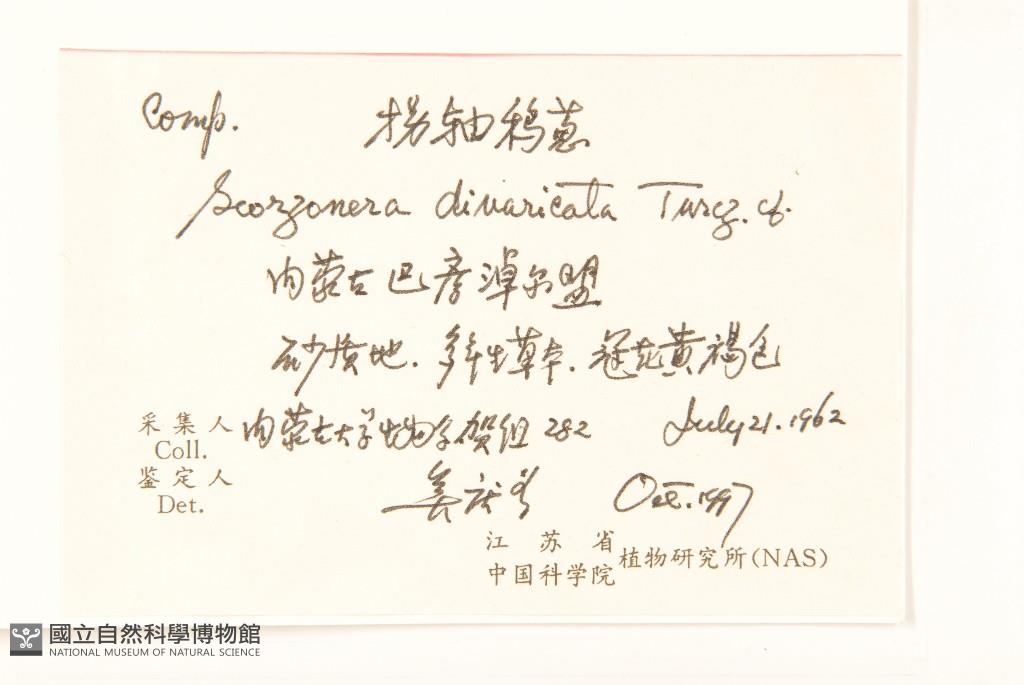 Comp. 拐轴鸦葱
Scorzonera divaricata Turcz. cf.
内蒙古巴彦淖尔盟
砂质地. 多年生草本. 冠花黄褐色
采集人 Coll. 内蒙古大学生物学贺组 282 July 21. 1962
鉴定人 Det. Oct. 1997
江苏省
中国科学院 植物研究所(NAS)
國立自然科學博物館
NATIONAL MUSEUM OF NATURAL SCIENCE